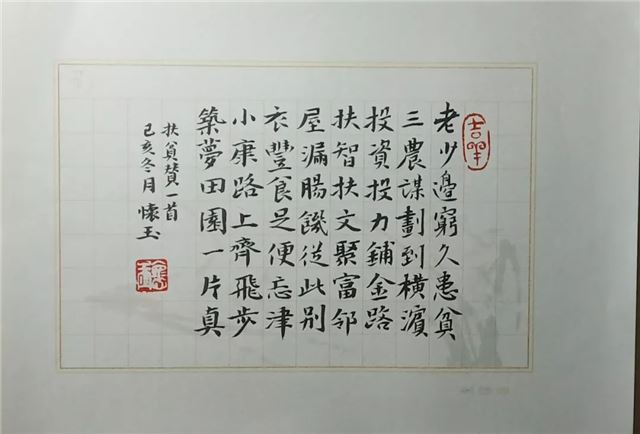 老少邊窮久患貧
三農謀劃到橫濵
投資投力鋪金路
扶智扶文聚富邻
屋漏腸饑從此别
衣豐食足便忘津
小康路上齊飛步
築夢田園一片真
扶貧賛一首
己亥冬月懷玉